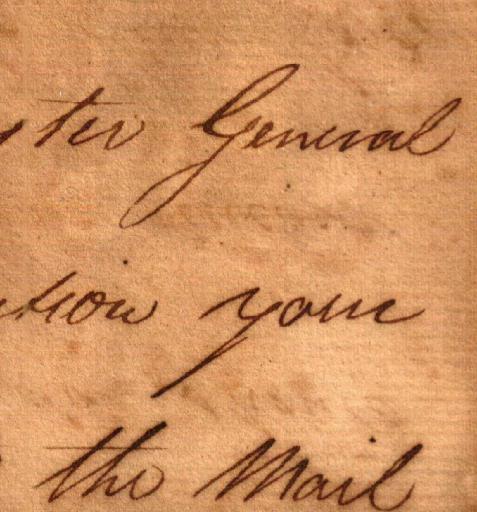 ster General
ation your
the Mail